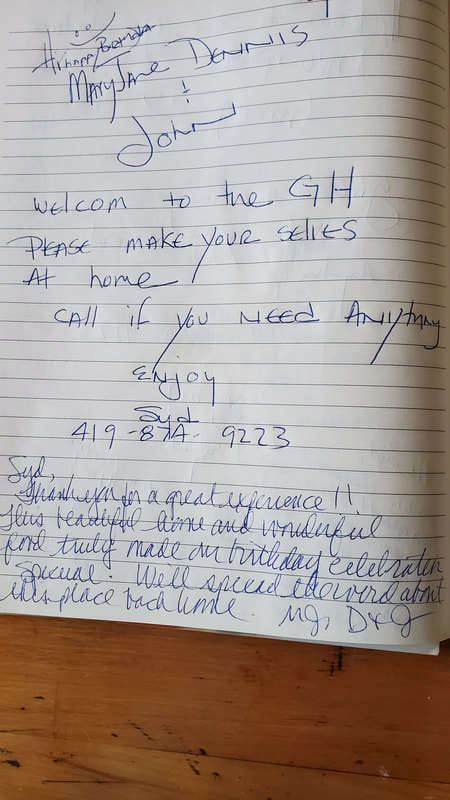 Happy Birthday
MaryJane Dennis
+
John
Welcom to the GH
Please make your selies
At home
Call if you need Anythng
Enjoy
Syd
419-874-9223
Syd,
Thank you for a great experience!!
This beautiful home and wonderful
food truly made our birthday celebration
special. We'll spread the word about
this place back home. MJ, D & J